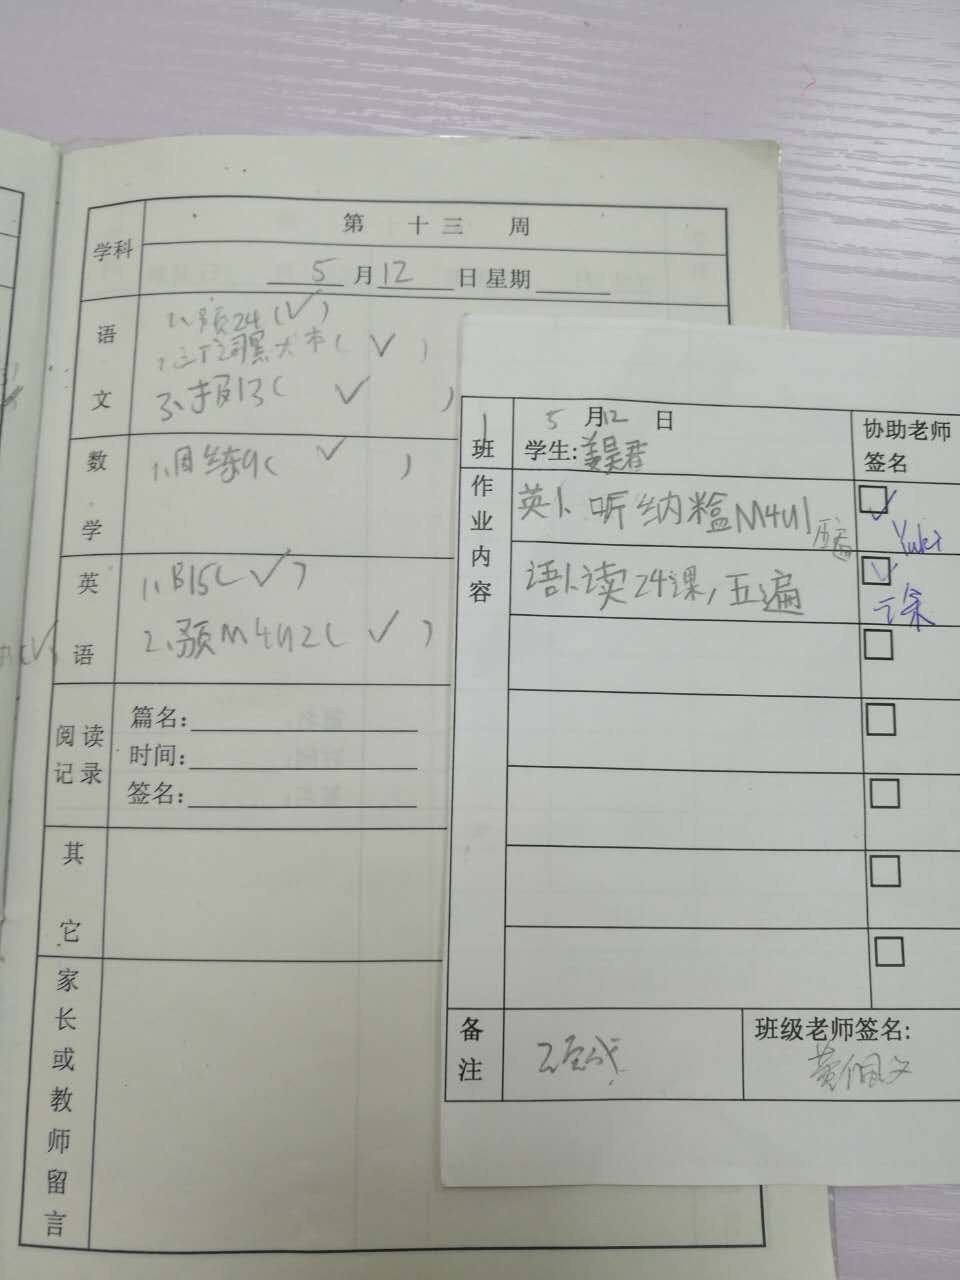 学科
第 十三 周
5月12日 星期
语文
1、预24(✓)
词黑大本(✓)
3、报13(✓)
数学
1、周练9(✓)
英语
1、B15(✓)
2、预M4U2(✓)
阅读记录
篇名:
时间:
签名:
其它
家长或教师留言
1班
5月12日
学生:姜昊君
协助老师签名
作业内容
英1、听纳米盒M4U1
Yuki
语1、读24课,五遍
备注
已完成
班级老师签名:
黄佩文